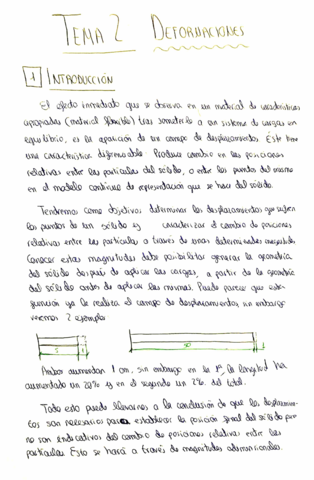 TEMA 2 DEFORMACIONES
1 INTRODUCCIÓN
El efecto inmediato que se observa en un material de características
apropiadas (material flexible) tras someterlo a un sistema de cargas en
equilibrio, es la aparición de un campo de desplazamientos. Éste tiene
una característica diferenciable. Produce cambio en las posiciones
relativas entre las partículas del sólido, o entre los puntos del mismo
en el modelo continuo de representación que se hace del sólido.
Tendremos como objetivos determinar los desplazamientos que sufren
los puntos de un sólido y caracterizar el cambio de posiciones
relativas entre las partículas a través de unas determinadas magnitudes.
Conocer estas magnitudes debe posibilitar generar la geometría
del sólido después de aplicar las cargas, a partir de la geometría
del sólido antes de aplicar las mismas. Puede parecer que esta
función ya la realiza el campo de desplazamientos, sin embargo
veremos 2 ejemplos
5 1 50 1
Ambos aumentan 1 cm, sin embargo en la 1ª, la longitud ha
aumentado un 20% y en el segundo un 2% del total.
Todo esto puede llevarnos a la conclusión de que los desplazamien-
tos son necesarios para establecer la posición final del sólido pero
no son indicativos del cambio de posiciones relativas entre las
partículas. Esto se hará a través de magnitudes adimensionales.